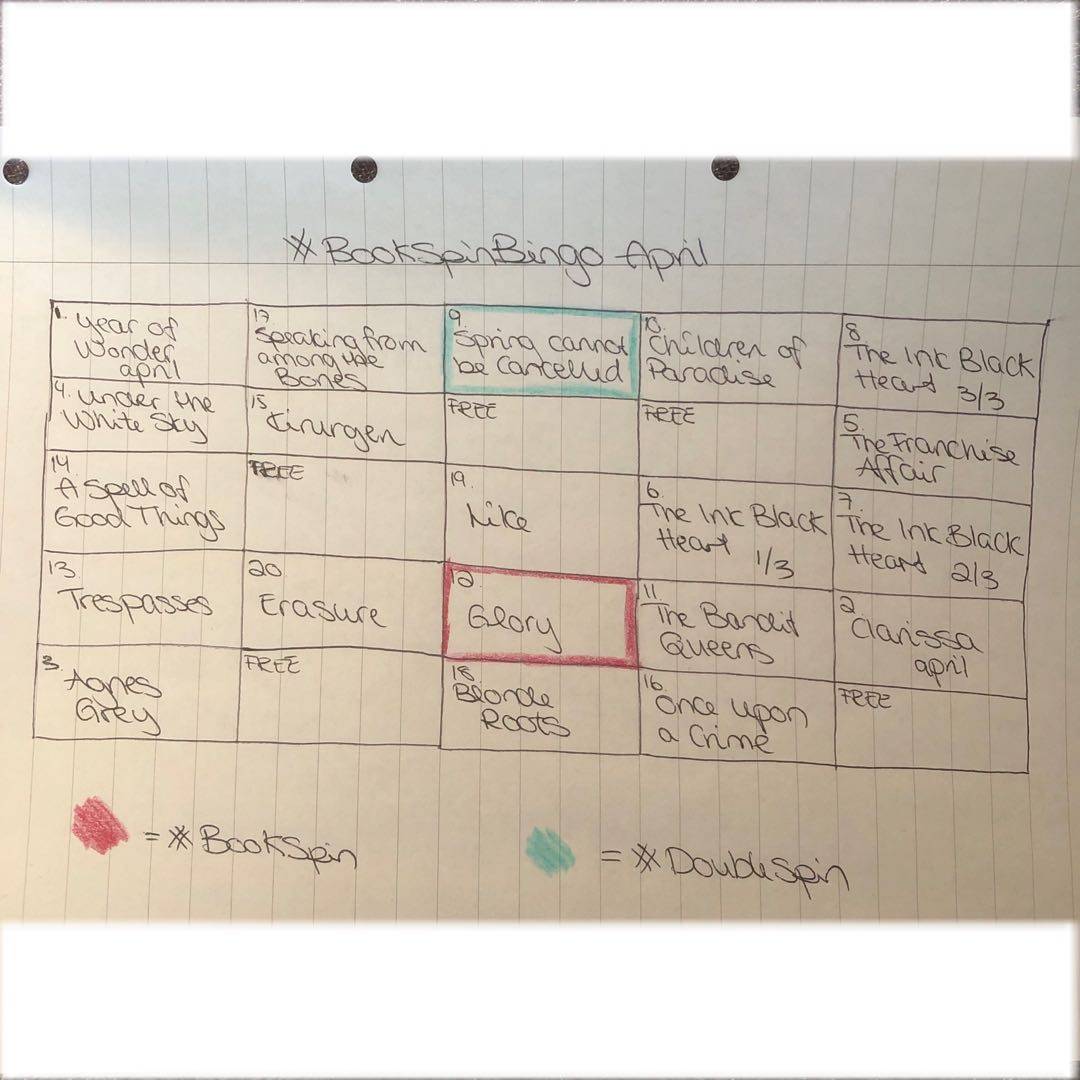 #BookSpinBingo April
1. Year of
Wonder
april
17
Speaking from
among the
Bones
9
Spring cannot
be Cancelled
10.
Children of
Paradise
8
The Ink Black
Heart 3/3
4. Under the
White Sky
15.
Kirurgen
FREE
FREE
5.
The Franchise
Affair
14
A Spell of
Good Things
FREE
19.
Like
6.
The Ink Black
Heart 1/3
7.
The Ink Black
Heart 2/3
13
Trespasses
20
Erasure
12
Glory
11
The Bandit
Queens
2
Clarissa
april
3
Agnes
Grey
FREE
18
Blonde
Roots
16
Once upon
a Crime
FREE
= #BookSpin
= #DoubleSpin